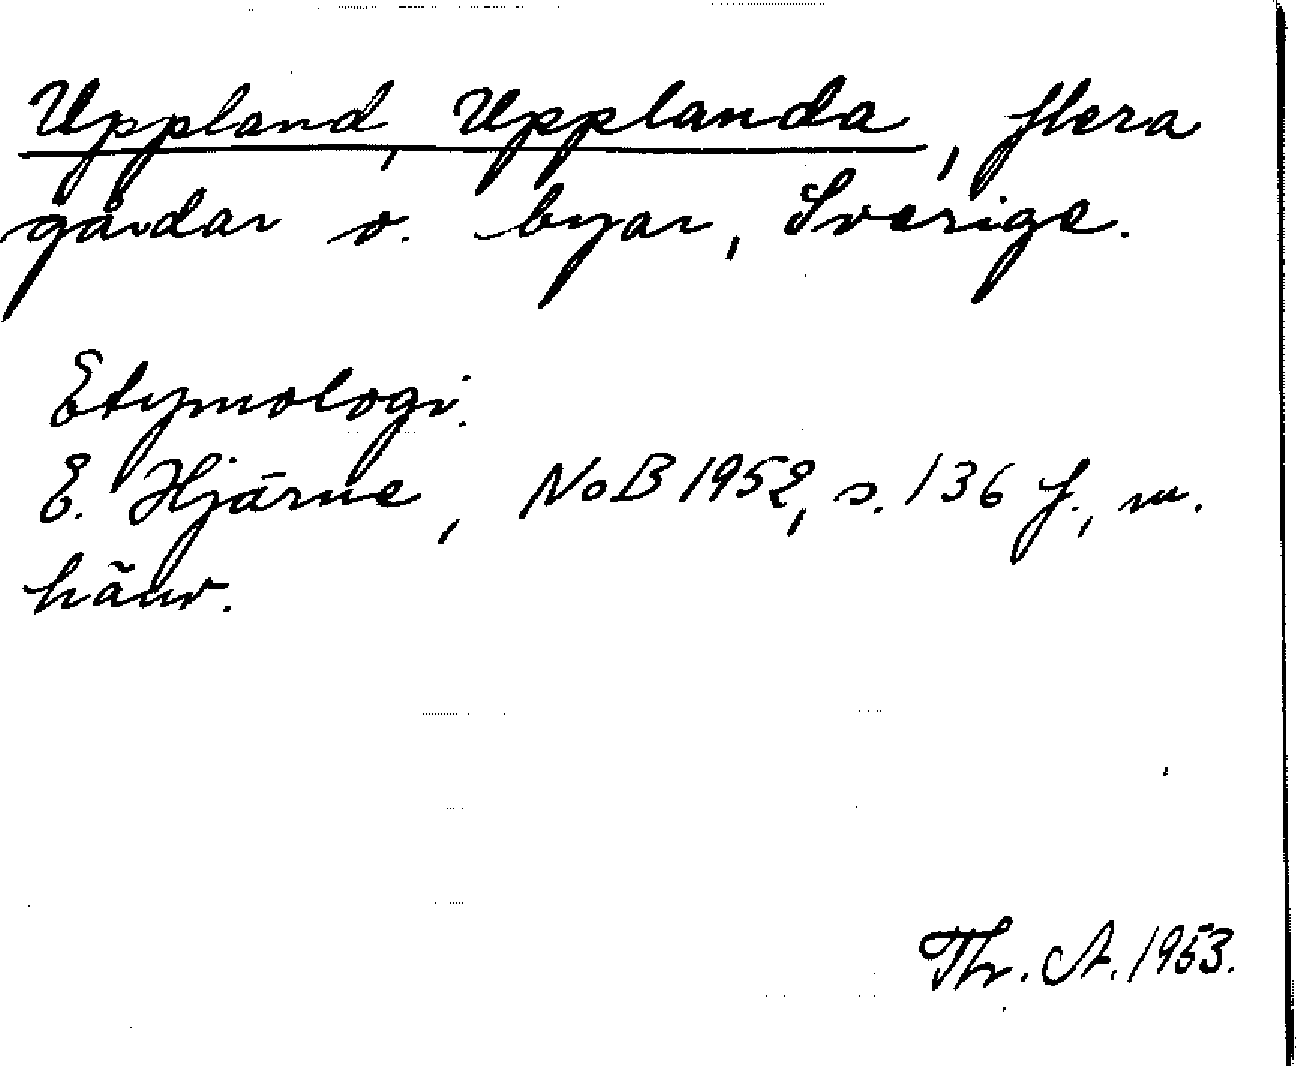 Uppland, Upplanda, flera
gårdar o. byar, Sverige.
Etymologi.
E. Hjärne, NoB 1952, s. 136 f., m.
hänv.
Th. A. 1953.